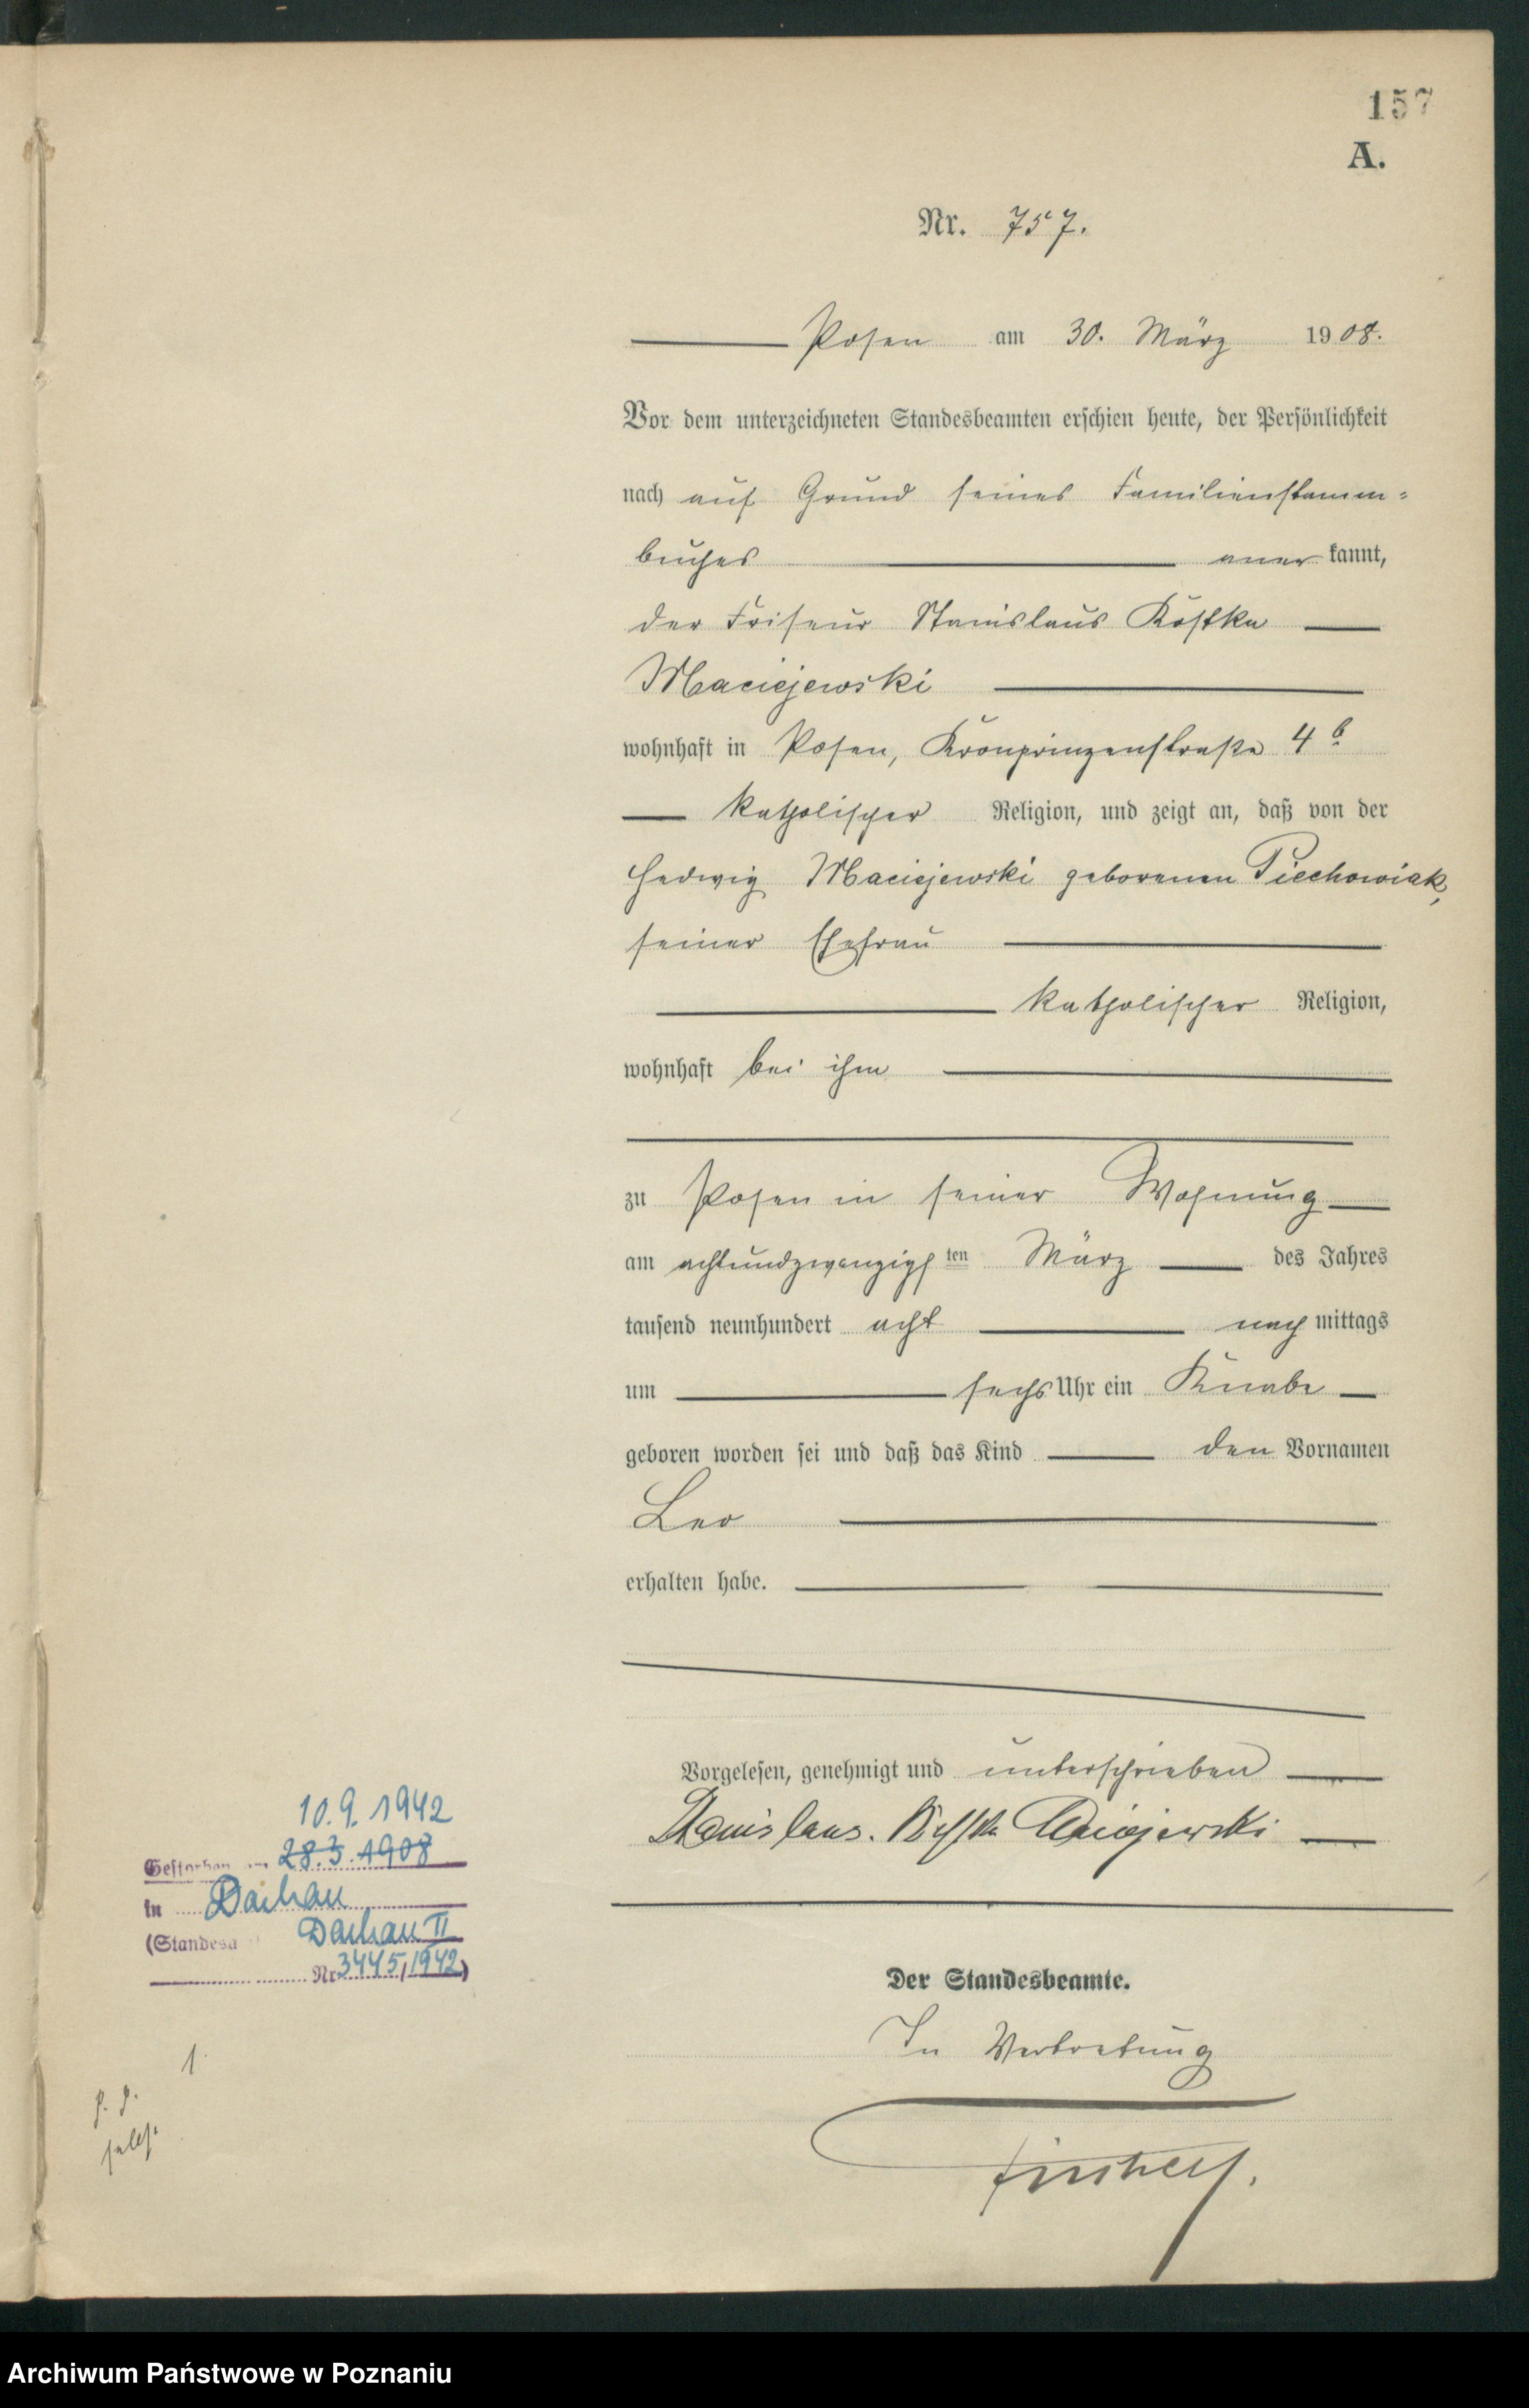 157
A.
Nr. 757.
Posen am 30. März 1908.
Vor dem unterzeichneten Standesbeamten erschien heute, der Persönlichkeit
nach auf Grund seines Familienstamm=
buches anerkannt,
der Friseur Stanislaus Kostka
Maciejewski
wohnhaft in Posen, Kronprinzenstraße 4 b
katholischer Religion, und zeigt an, daß von der
Hedwig Maciejewski geborenen Piechowiak,
seiner Ehefrau
katholischer Religion,
wohnhaft bei ihm
zu Posen in seiner Wohnung
am achtundzwanzigsten März des Jahres
tausend neunhundert acht nachmittags
um sechs Uhr ein Knabe
geboren worden sei und daß das Kind den Vornamen
Leo
erhalten habe.
Vorgelesen, genehmigt und unterschrieben
Stanislaus. Kostka Maciejewski
Der Standesbeamte.
In Vertretung
10.9.1942
Gestorben am 28.3.1908
in Dachau
(Standesa Dachau II
Nr 3445/1942)
1
Archiwum Państwowe w Poznaniu